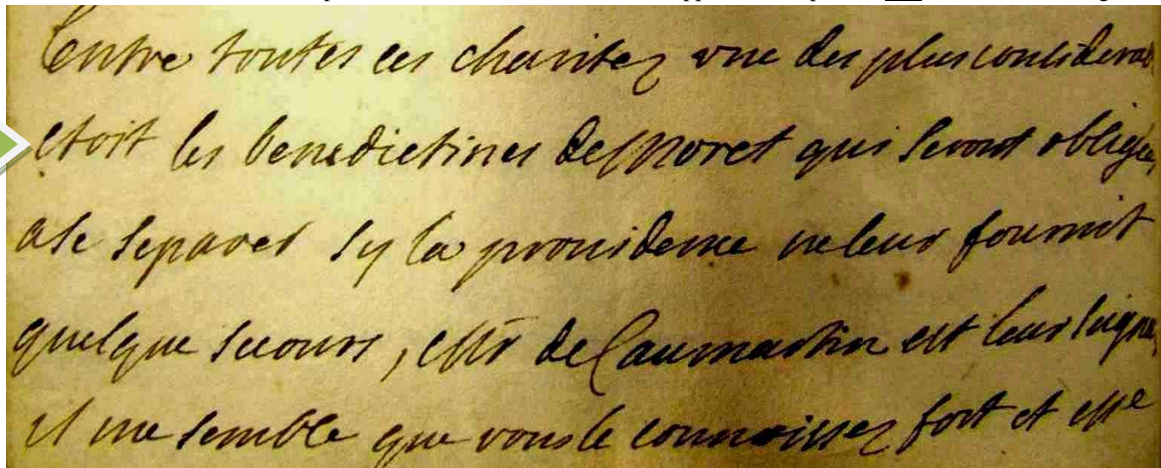 Entre toutes ces charitez une des plus considerab
etoit les benedictines de Moret qui seront obligée
a se separer sy la providence ne leur fournit
quelque secours, Mr de Caumartin est leur
il me semble que vous le connoissez fort et Mme